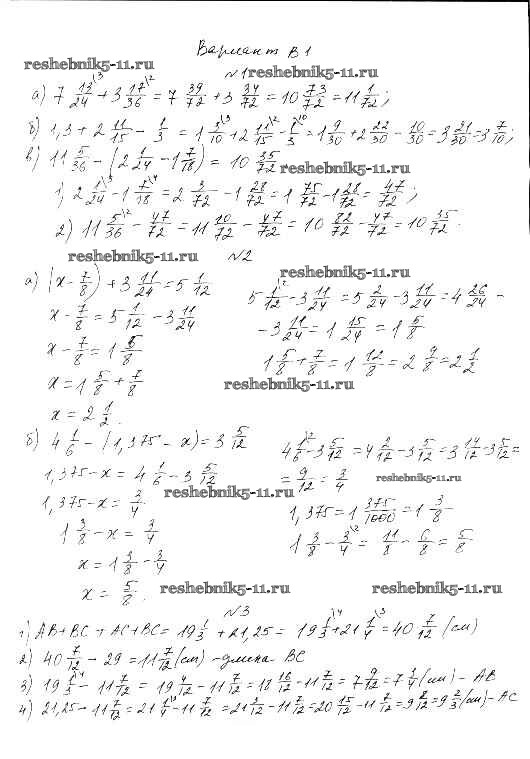 Вариант В 1
reshebnik5-11.ru
№1 reshebnik5-11.ru
а) 7 13/24 \3 + 3 17/36 \2 = 7 39/72 + 3 34/72 = 10 73/72 = 11 1/72;
б) 1,3 + 2 11/15 - 1/3 = 1 3/10 \3 + 2 11/15 \2 - 1/3 \10 = 1 9/30 + 2 22/30 - 10/30 = 3 21/30 = 3 7/10;
в) 11 5/36 - (2 1/24 - 1 7/18) = 10 35/72
reshebnik5-11.ru
1) 2 1/24 \3 - 1 7/18 \4 = 2 3/72 - 1 28/72 = 1 75/72 - 1 28/72 = 47/72;
2) 11 5/36 \2 - 47/72 = 11 10/72 - 47/72 = 10 82/72 - 47/72 = 10 35/72.
reshebnik5-11.ru №2
reshebnik5-11.ru
а) (x - 7/8) + 3 11/24 = 5 1/12
x - 7/8 = 5 1/12 - 3 11/24
x - 7/8 = 1 5/8
x = 1 5/8 + 7/8
x = 2 1/2.
5 1/12 \2 - 3 11/24 = 5 2/24 - 3 11/24 = 4 26/24 -
- 3 11/24 = 1 15/24 = 1 5/8
1 5/8 + 7/8 = 1 12/8 = 2 4/8 = 2 1/2
reshebnik5-11.ru
б) 4 1/6 - (1,375 - x) = 3 5/12
1,375 - x = 4 1/6 - 3 5/12
1,375 - x = 3/4
1 3/8 - x = 3/4
x = 1 3/8 - 3/4
x = 5/8.
4 1/6 \2 - 3 5/12 = 4 2/12 - 3 5/12 = 3 14/12 - 3 5/12 =
= 9/12 = 3/4
reshebnik5-11.ru
reshebnik5-11.ru
1,375 = 1 375/1000 = 1 3/8
1 3/8 - 3/4 \2 = 11/8 - 6/8 = 5/8
reshebnik5-11.ru
reshebnik5-11.ru
№3
1) AB + BC + AC + BC = 19 1/3 + 21,25 = 19 1/3 \4 + 21 1/4 \3 = 40 7/12 (см)
2) 40 7/12 - 29 = 11 7/12 (см) - длина BC
3) 19 1/3 \4 - 11 7/12 = 19 4/12 - 11 7/12 = 18 16/12 - 11 7/12 = 7 9/12 = 7 3/4 (см) - AB
4) 21,25 - 11 7/12 = 21 1/4 \3 - 11 7/12 = 21 3/12 - 11 7/12 = 20 15/12 - 11 7/12 = 9 8/12 = 9 2/3 (см) - AC